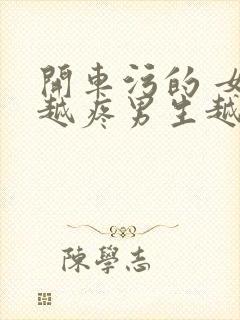 開車污的 女
越疼男生越
陳學志